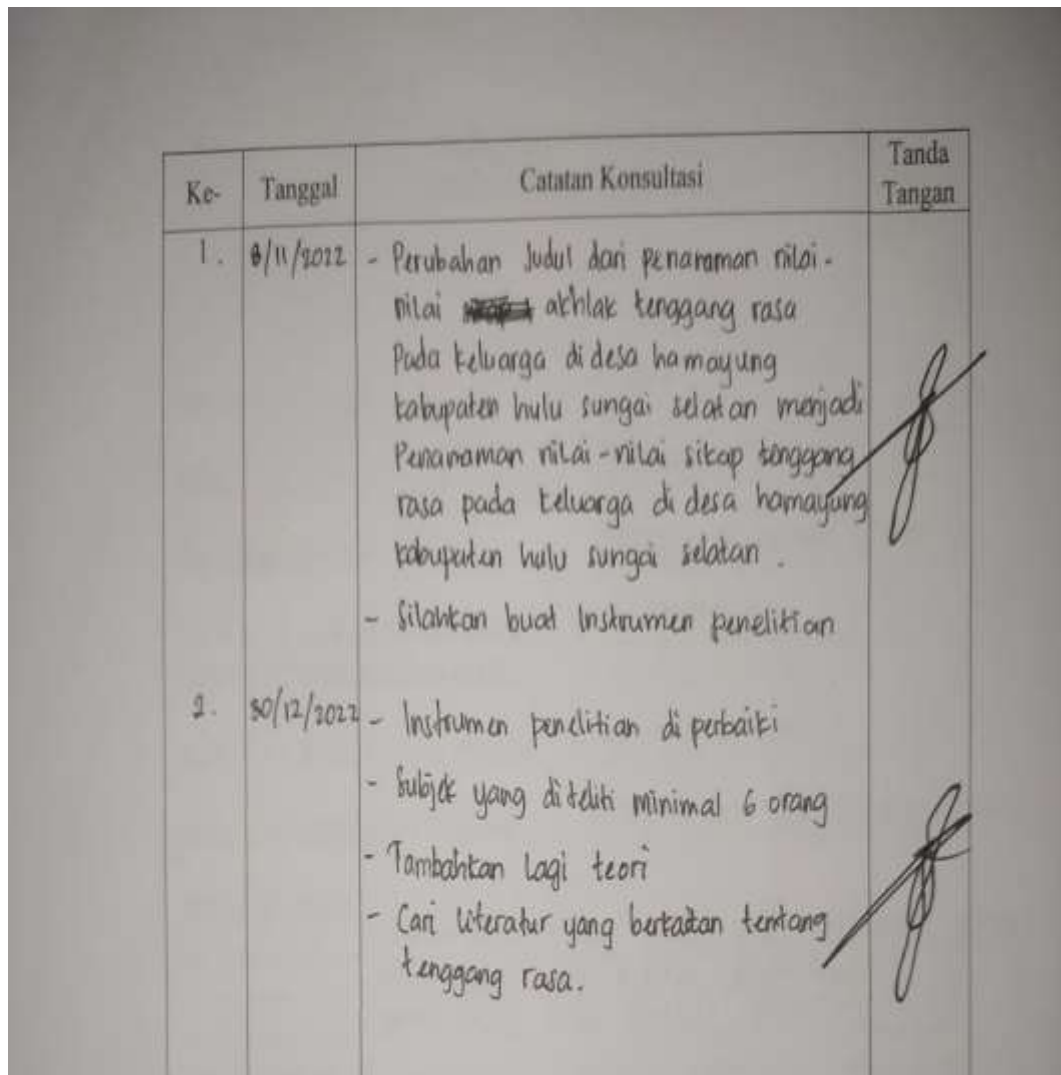 Ke- Tanggal Catatan Konsultasi Tanda Tangan
1. 8/11/2022 - Perubahan Judul dari penanaman nilai-
nilai akhlak tenggang rasa
Pada keluarga di desa hamayung
kabupaten hulu sungai selatan menjadi
Penanaman nilai-nilai sikap tenggang
rasa pada keluarga di desa hamayung
kabupaten hulu sungai selatan.
- Silahkan buat Instrumen penelitian
2. 30/12/2022 - Instrumen penelitian di perbaiki
- Subjek yang diteliti minimal 6 orang
- Tambahkan Lagi teori
- Cari literatur yang berkaitan tentang
tenggang rasa.